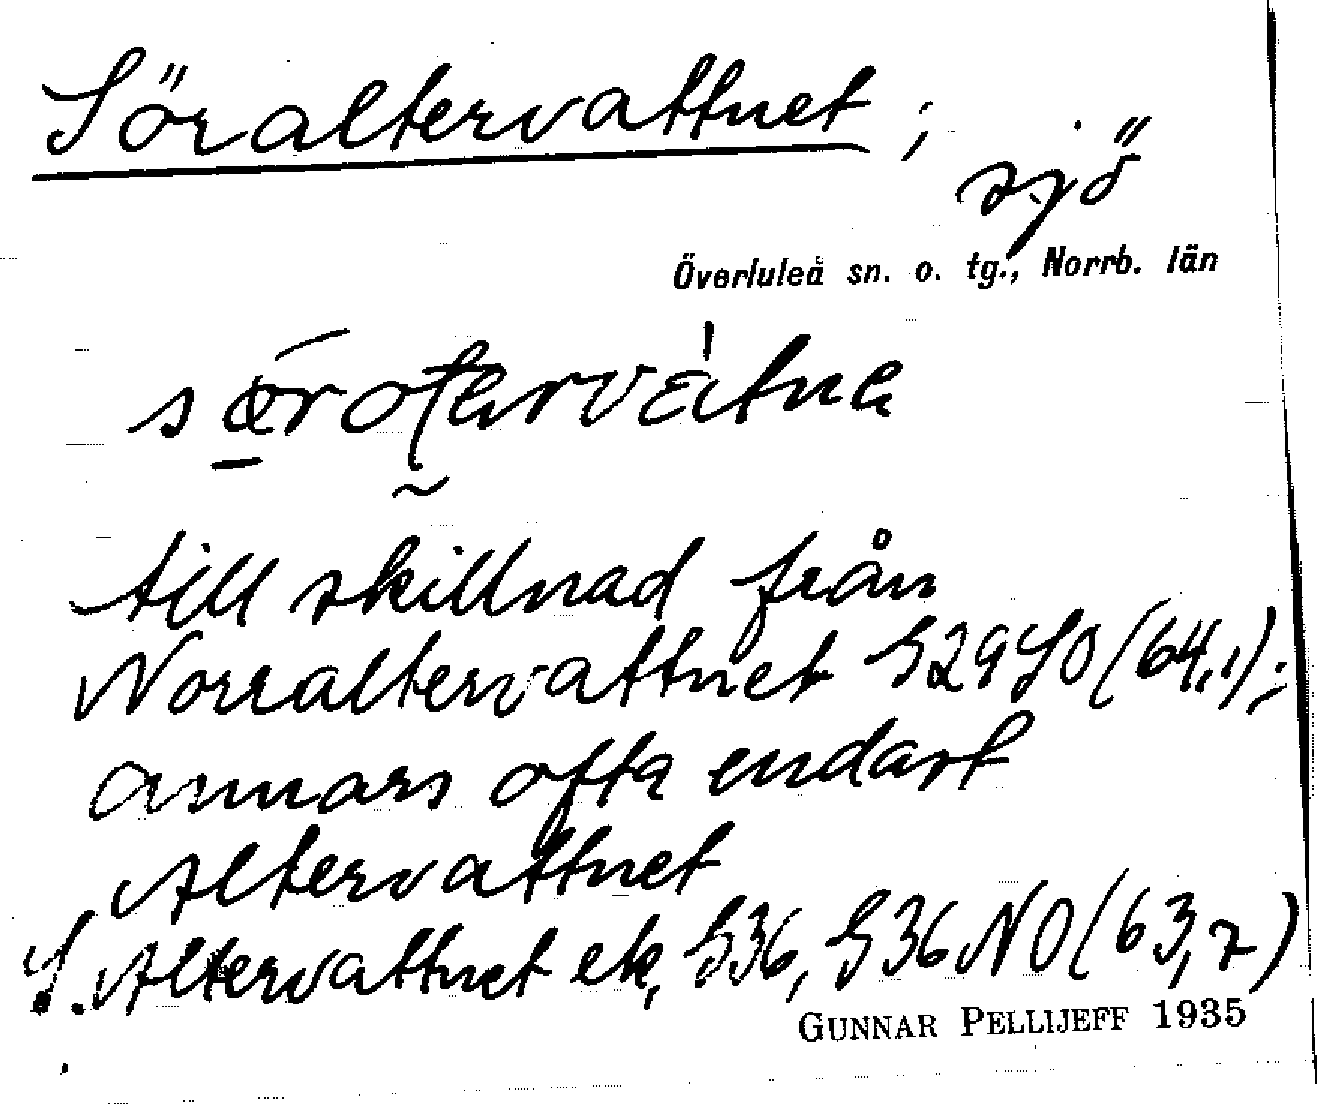 Söraltervattnet ; sjö
Överluleå sn. o. tg., Norrb. län
till skillnad från
Norraltervattnet G29SO (64,1);
annars ofta endast
Altervattnet
S. Altervattnet ek, G36, G36NO (63,7)
GUNNAR PELLIJEFF 1935